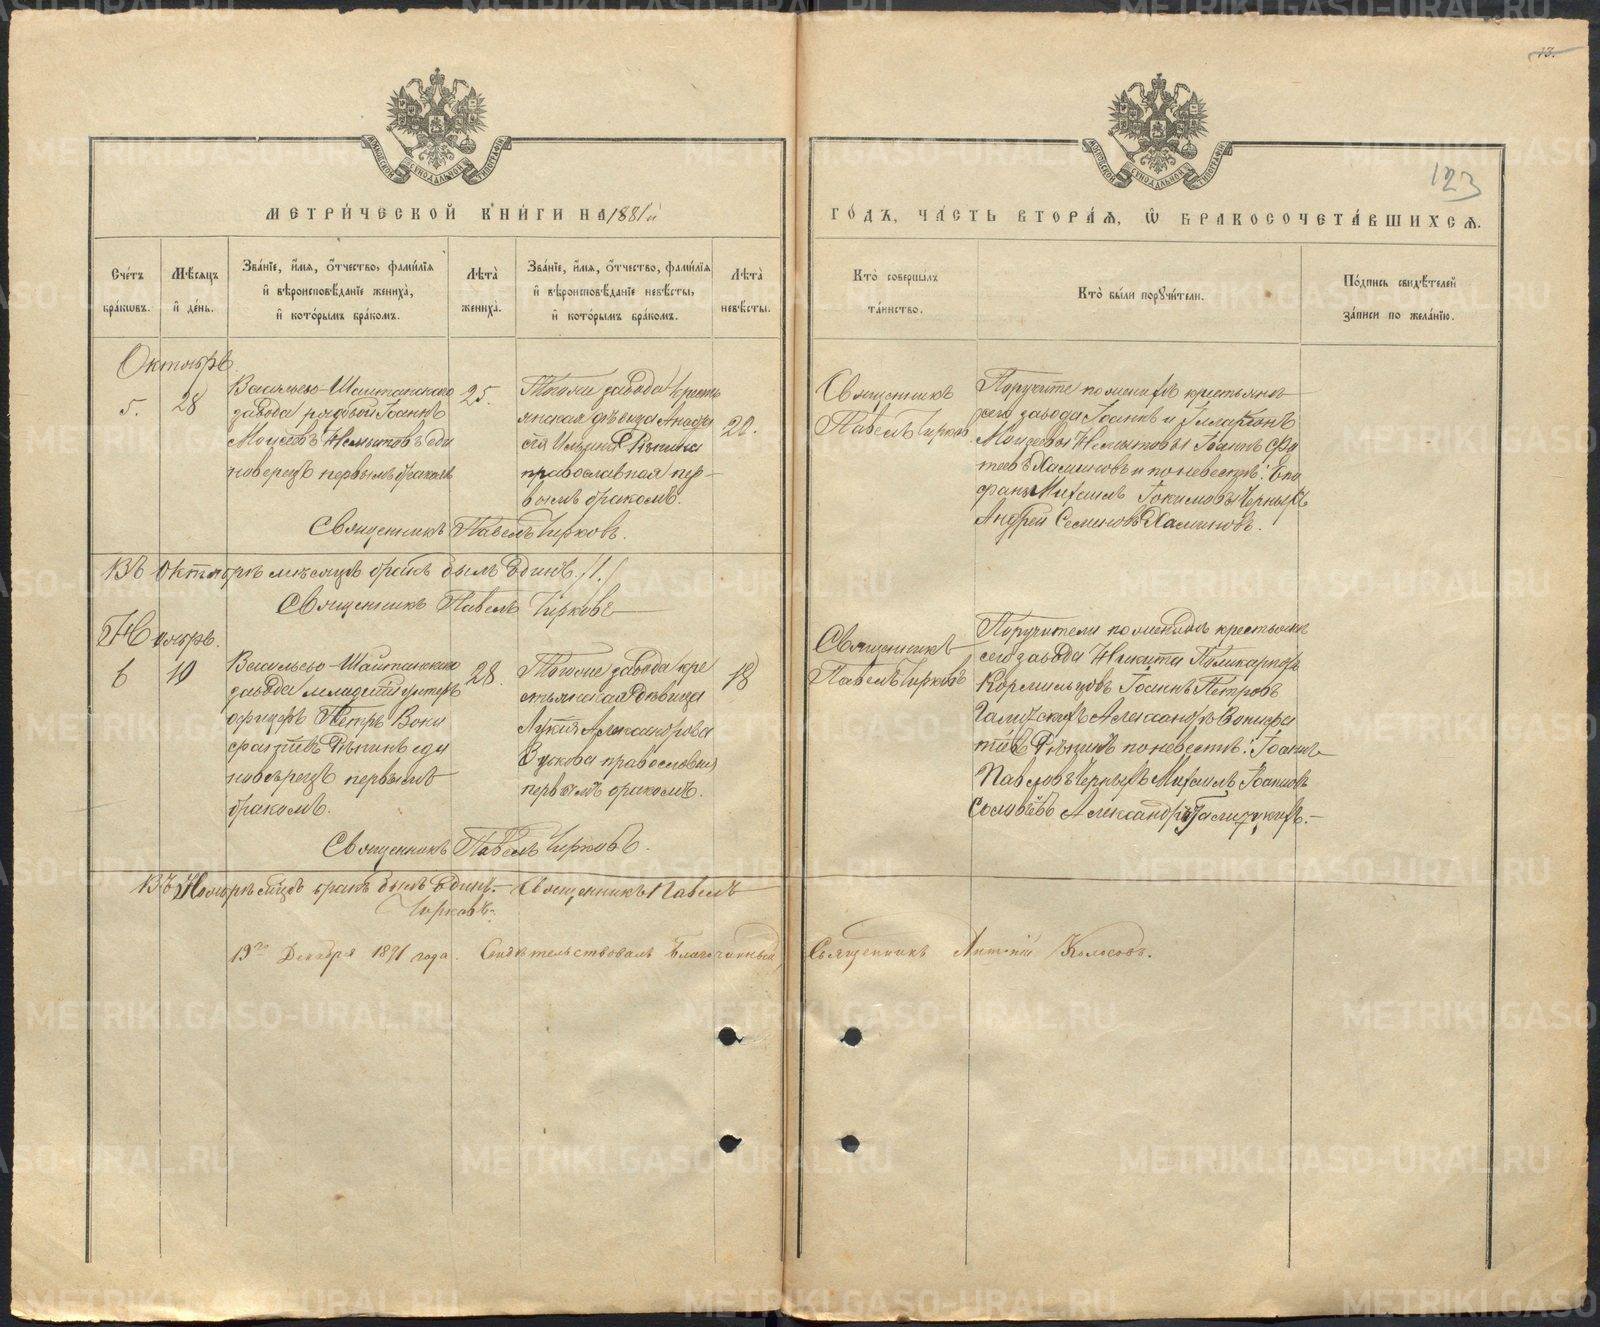 13.
123
МОСКОВСКОЙ СѴНОДАЛЬНОЙ ТИПОГРАФІИ
МОСКОВСКОЙ СѴНОДАЛЬНОЙ ТИПОГРАФІИ
МЕТРИ́ЧЕСКОЙ КНИ́ГИ НА 1881й
ГО́ДЪ, ЧА́СТЬ ВТОРА́Я, Ѿ БРАКОСОЧЕТА́ВШИХСЯ.
Сче́тъ бра́кѡвъ.
Мѣ́сяцъ и҆ де́нь.
Зва́нїе, и҆́мя, ѻ҆́тчество, фами́лїя
и҆ вѣроисповѣ́данїе жениха̀,
и҆ кото́рымъ бра́комъ.
Лѣ́та жениха̀.
Зва́нїе, и҆́мя, ѻ҆́тчество, фами́лїя
и҆ вѣроисповѣ́данїе невѣ́сты,
и҆ кото́рымъ бра́комъ.
Лѣ́та невѣ́сты.
Кто̀ соверша́лъ
та́инство.
Кто̀ бы́ли порꙋчи́тели.
По́дпись свидѣ́телей
за́писи по жела́нїю.
Октябрь
5.
28
Васильево-Шайтанского
завода рядовой Іоаннъ
Моисеевъ Немытовъ еди
новерецъ первымъ бракомъ
25.
Тогоже завода кресть
янская дѣвица Анафи
сія Ильина Рѣпина
православная пер-
вымъ бракомъ.
Священникъ
Павелъ Чирков
Поручите по женихѣ крестьяне
сего завода Іоаннъ и Илларіонъ
Моисеевы Немытовы Іоаннъ
и по невестѣ:
Михаилъ Іокимовъ Черныхъ
Андрей Семеновъ
Священникъ Павелъ Чирковъ.
Въ Октябрѣ месяцѣ бракъ былъ Единъ. /1./
Священникъ Павелъ Чирковъ
Ноябрь.
6
10
Васильево-Шайтанскаго
завода младшій унтеръ
офицеръ Петръ Вони
фатіевъ Рѣпинъ еди
новѣрецъ первымъ
бракомъ.
28.
Тогоже завода кре
стьянская дѣвица
Александрова
православная
первымъ бракомъ.
18
Священникъ
Павелъ Чирковъ
Поручители по женихѣ крестьяне
сего завода Никита Поликарповъ
Кормильцовъ Іоаннъ Петровъ
Галицкихъ Александръ Вонифа
тіевъ Рѣпинъ по невестѣ: Іоаннъ
Павловъ Черныхъ Михаилъ Іоанновъ
Соловьевъ Александръ Галицкихъ.-
Священникъ Павелъ Чирковъ.
Въ Ноябрѣ бракъ былъ Единъ. Священникъ Павелъ
Чирковъ.
19го Декабря 1881 года. Свидѣтельствовалъ Благочинный, Священникъ Антоній Колосовъ.
METRIKI.GASO-URAL.RU